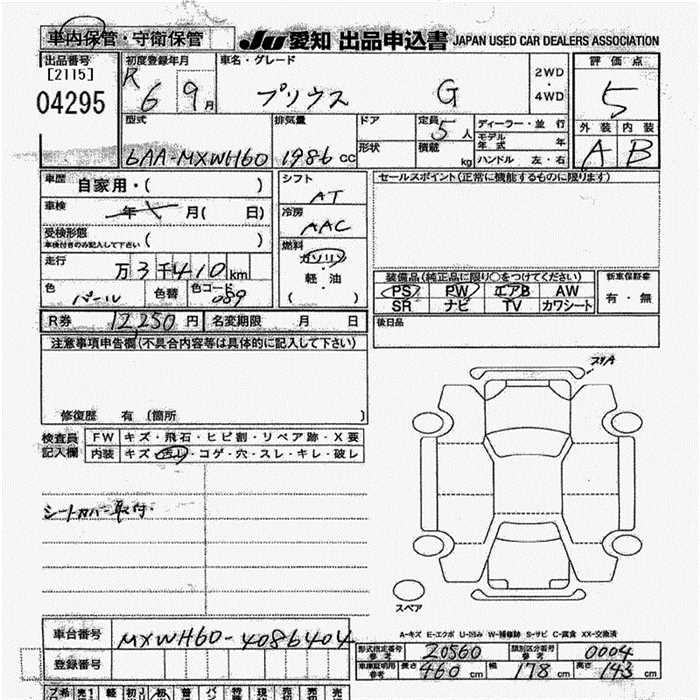 車内保管・守衛保管 JU 愛知 出品申込書 JAPAN USED CAR DEALERS ASSOCIATION
出品番号 初度登録年月 車名・グレード 2WD・4WD 評価点
[2115] R 6 9月 プリウス G 5
04295
型式 排気量 ドア 定員 5人 ディーラー・並行 外装 内装
形状 積載 kg モデル年式 年
6AA-MXWH60 1986cc ハンドル 左・右 A B
車歴 自家用・( ) シフト AT セールスポイント(正常に機能するものに限ります)
車検 年 月( 日) 冷房 AAC
受検形態 ( )
車検付きのみ記入して下さい
走行 万3千410km 燃料 ガソリン・軽・油 ( )
装備品(純正品に限り○をつけてください) 新車保証書
PS PW エアB AW 有・無
SR ナビ TV カワシート
色 パール 色替 色コード 089
R券 12,250円 名変期限 月 日 後日品
注意事項申告欄(不具合内容等は具体的に記入して下さい)
修復歴 有 (箇所 )
検査員記入欄 FW キズ・飛石・ヒビ割・リペア跡・X要
内装 キズ・汚レ・コゲ・穴・スレ・キレ・破レ
シートカバー取付.
スペア
A-キズ E-エクボ U-凹み W-補修跡 S-サビ C-腐食 XX-交換済
車台番号 MXWH60-4086404
形式指定番号 参考 20560 類別区分番号 参考 0004
登録番号
車庫証明用参考 長さ 460cm 幅 178cm 高さ 143cm